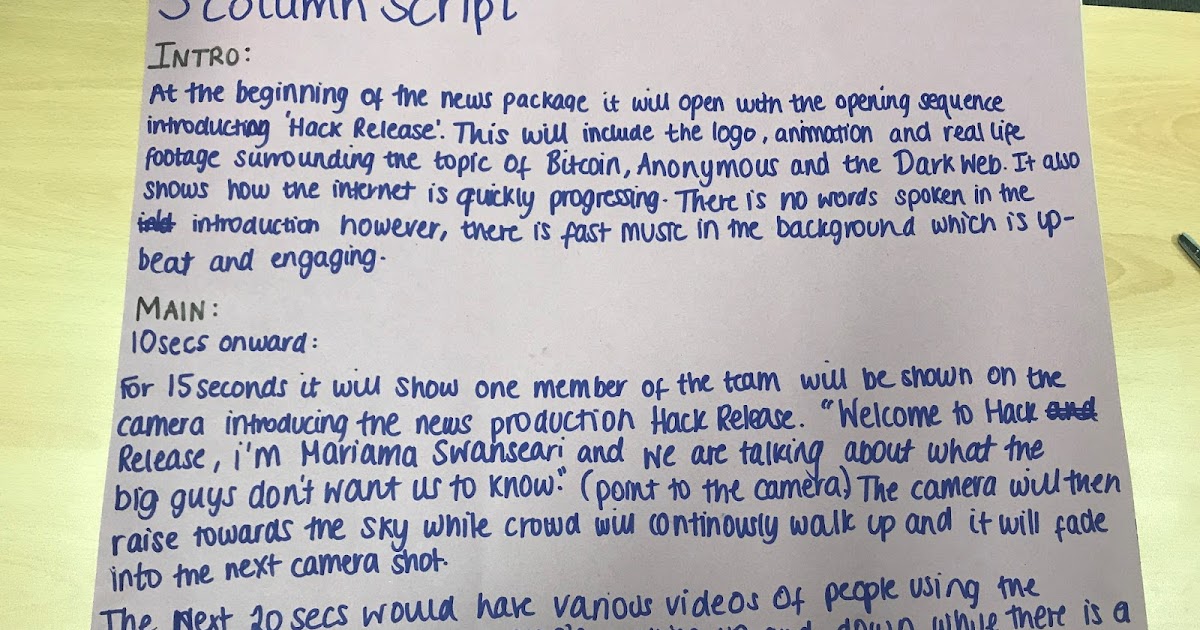 3 Column Script
INTRO:
At the beginning of the news package it will open with the opening sequence
introducting 'Hack Release'. This will include the logo, animation and real life
footage surrounding the topic of Bitcoin, Anonymous and the Dark Web. It also
shows how the internet is quickly progressing. There is no words spoken in the
introduction however, there is fast music in the background which is up-
beat and engaging.
MAIN:
10secs onward:
For 15 seconds it will show one member of the team will be shown on the
camera introducing the news production Hack Release. "Welcome to Hack and
Release, i'm Mariama Swanseari and we are talking about what the
big guys don't want us to know." (point to the camera) The camera will then
raise towards the sky while crowd will continously walk up and it will fade
into the next camera shot.
The Next 20 secs would have various videos of people using the
and down while there is a